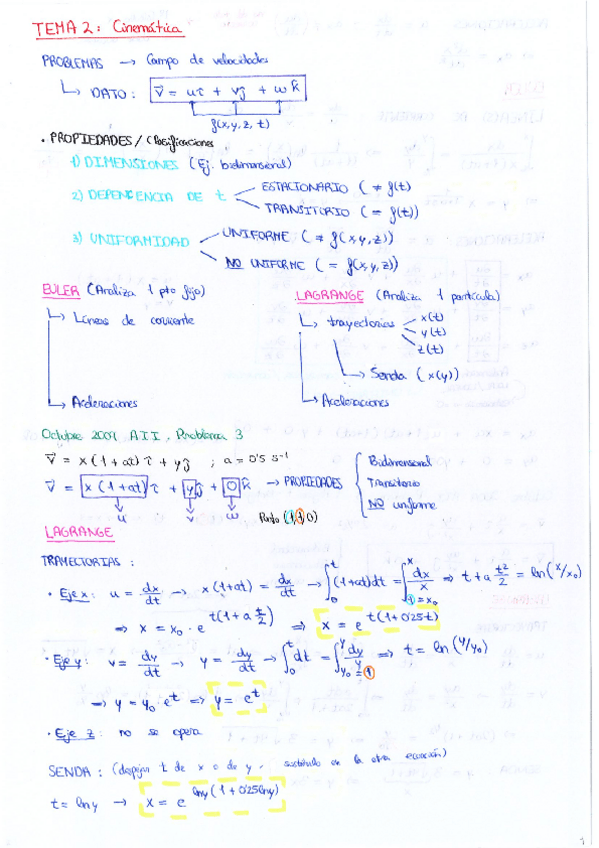 TEMA 2: Cinemática
PROBLEMAS → Campo de velocidades
↳ DATO: v⃗ = uî + vĵ + ωk̂
f(x,y,z,t)
· PROPIEDADES / Clasificaciones
1) DIMENSIONES (Ej. bidimensional)
2) DEPENDENCIA DE t
ESTACIONARIO (≠ f(t))
TRANSITORIO (= f(t))
3) UNIFORMIDAD
UNIFORME (≠ f(x,y,z))
NO UNIFORME (= f(x,y,z))
EULER (Analiza 1 pto fijo)
↳ Líneas de corriente
↳ Aceleraciones
LAGRANGE (Analiza 1 partícula)
↳ trayectorias
x(t)
y(t)
z(t)
↳ Senda (x(y))
↳ Aceleraciones
Octubre 2009 AII, Problema 3
v⃗ = x(1+at)î + yĵ ; a = 0'5 s⁻¹
v⃗ = x(1+at)î + yĵ + 0k̂ → PROPIEDADES
Bidimensional
Transitorio
NO uniforme
u v ω Punto (1,1,0)
LAGRANGE
TRAYECTORIAS:
· Eje x: u = dx/dt → x(1+at) = dx/dt → ∫₀ᵗ (1+at)dt = ∫₁₌ₓ₀ˣ dx/x ⇒ t + a t²/2 = ln(x/x₀)
⇒ x = x₀ · e^t(1+a t/2) ⇒ x = e^t(1+0'25·t)
· Eje y: v = dy/dt → y = dy/dt → ∫₀ᵗ dt = ∫y₀=1^y dy/y ⇒ t = ln(y/y₀)
⇒ y = y₀ · eᵗ ⇒ y = eᵗ
· Eje z: no se opera
SENDA: (despejar t de x o de y, sustituirlo en la otra ecuación)
t = ln y → x = e^lny(1+0'25lny)